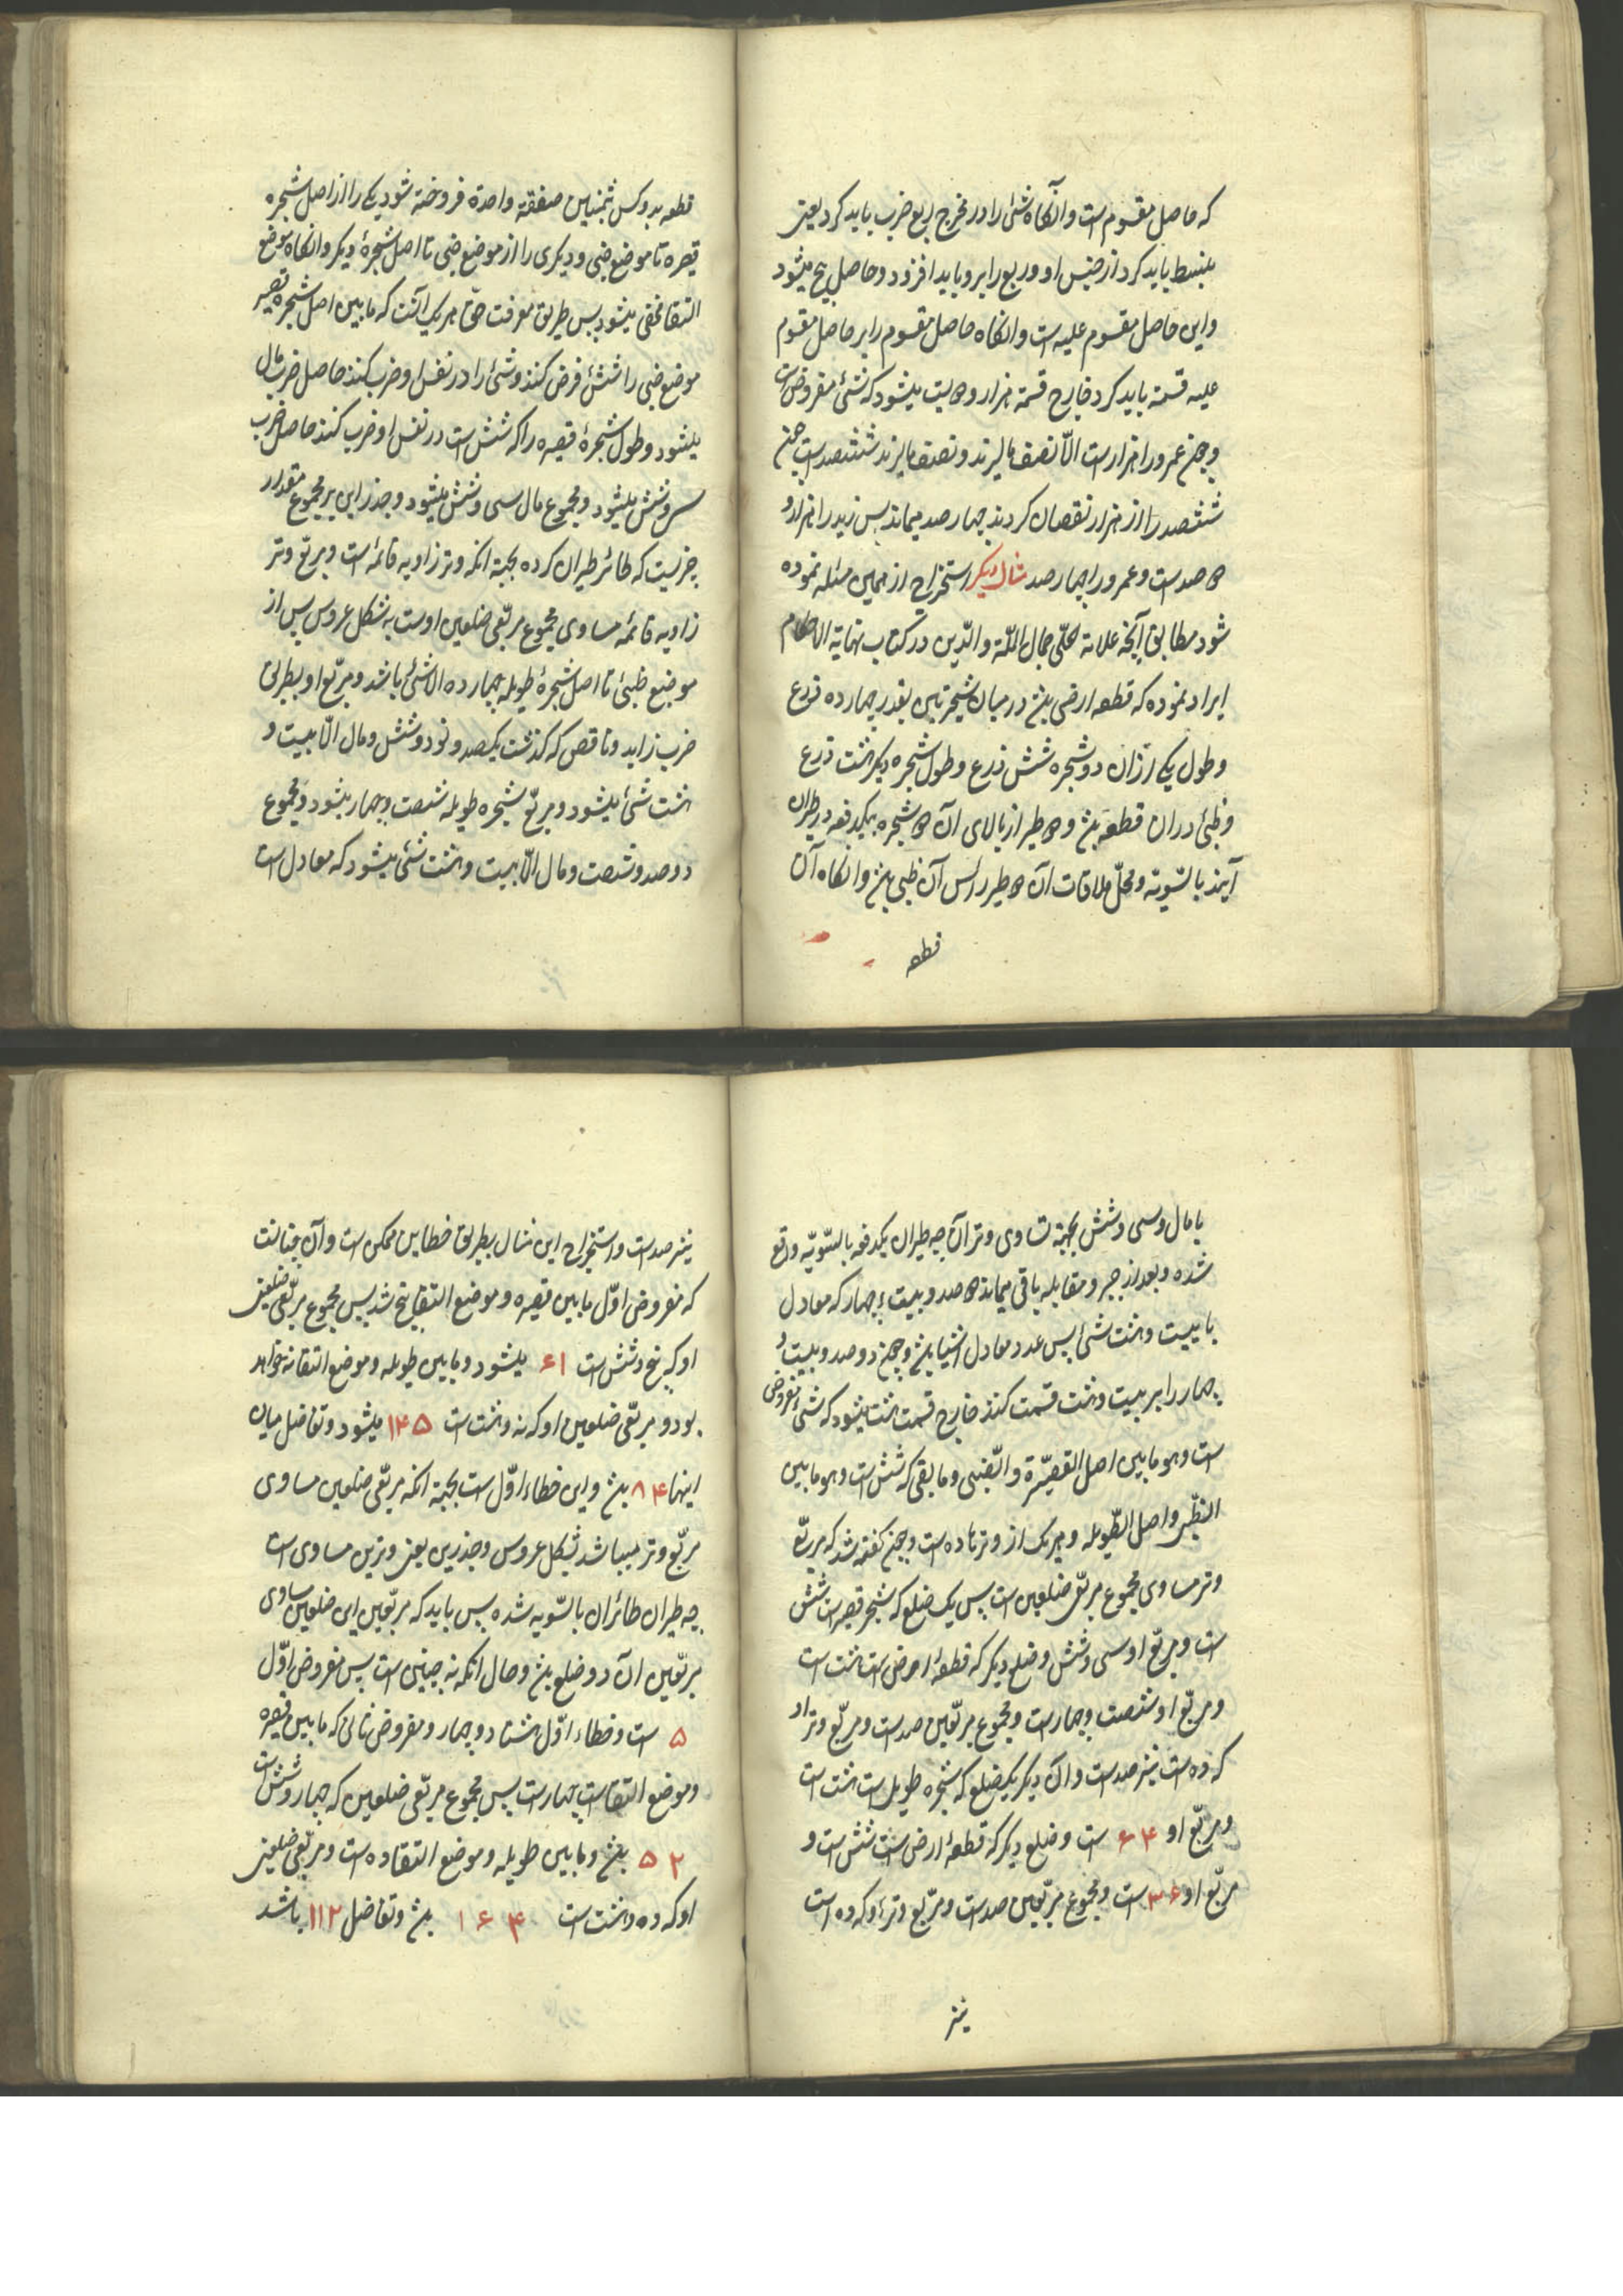 که حاصل مقسوم است وانگاه شئ را در مخرج ربع ضرب باید کرد یعنی
بسط باید کرد از جنس او و ربع را برو باید افزود و حاصل پنج میشود
واین حاصل مقسوم علیه است وانگاه حاصل مقسوم را بر حاصل مقسوم
علیه قسمة باید کرد خارج قسمة هزار و میشود که شئ مفروض است
و چون عمرو را هزار است الّا نصف مالزید و نصف مالزید ششصد است چون
ششصد را از هزار نقصان کردند چهارصد میماند پس زید را هزار و
صد است و عمرو را چهارصد مثال دیگر استخراج از همین مسئله نموده
شود مطابق آنچه علامۀ حلّی جمال الملّة والدّین در کتاب نهایة الاحکام
ایراد نموده که قطعه ارضی در میان شجرتین بقدر چهارده ذرع
و طول یکی از ان دو شجره شش ذرع و طول شجره دیگر هشت ذرع
و ظبئ دران قطعه و طیر از بالای آن شجره بیکدفعه در طیران
آیند بالسّویّه و محلّ ملاقات آن طیر رأس آن ظبی وانگاه آن
قطعه
قطعه بدو کس بثمنین صفقة واحدة فروخته شود یکی را از اصل شجره
قصیره تا موضع ضبی و دیگری را از موضع ضبی تا اصل شجرۀ دیگر وانگاه موضع
التقا مخفی میشود پس طریق معرفت حقّ هر یک آنست که مابین اصل شجره قصیر
موضع ضبی را شئ فرض کنند و شئ را در نفس او ضرب کنند حاصل ضرب مال
میشود و طول شجرۀ قصیره را که شش است در نفس او ضرب کنند حاصل ضرب
سی و شش میشود و مجموع مال سی و شش میشود و جذر این بر مجموع مقدار
چیزیست که طائر طیران کرده بجهة انکه وتر زاویه قائمه است و مربّع وتر
زاویه قائمه مساوی مجموع مربّعی ضلعین اوست به شکل عروس پس از
موضع ظبئ تا اصل شجرۀ طویله چهارده الّا شئ باشد و مربّع او بطریق
ضرب زاید و ناقص که گذشت یکصد و نود و شش و مال الّا بیست و
هشت شئ میشود و مربّع شجره طویله شصت و چهار میشود و مجموع
دوصد و شصت و مال الّا بیست و هشت شئ میشود که معادل است
با مال و سی و شش بجهة تساوی وتران چه طیران یکدفعه بالسّویّه واقع
شده و بعد از جبر و مقابله باقی میماند صد و بیست و چهار که معادل
با بیست و هشت شئ پس عدد معادل اشیا و چون دوصد و بیست و
چهار را بر بیست و هشت قسمت کنند خارج قسمت هشت میشود که شئ مفروض
است وهو مابین اصل القصیرة والضبی و مابقی که شش است وهو مابین
الظبی و اصل الطّویله و هر یک از وترها ده است و چون گفته شد که مربّع
وتر مساوی مجموع مربّعی ضلعین است پس یک ضلع که شجر قصیر است شش
است و مربّع او سی و شش و ضلع دیگر که قطعۀ ارض است هشت است
و مربّع او شصت و چهار است و مجموع مربّعین صد است و مربّع وتر او
که ده است نیز صد است و آن دیگر یکضلع که شجره طویل است هشت است
و مربّع او ۶۴ است و ضلع دیگر که قطعۀ ارض است شش است و
مربّع او ۳۶ است و مجموع مربّعین صد است و مربّع وتر او که ده است
نیز
نیز صد است و استخراج این مثال بطریق خطاین ممکن است و آن چنانست
که مفروض اوّل مابین قصیره و موضع التقا پنج شد پس مجموع مربّعی ضلعین
او که پنج و شش است ۶۱ میشود و مابین طویله و موضع التقا نه خواهد
بود و مربّعی ضلعین او که نه و هشت است ۱۴۵ میشود و تفاضل میان
اینها ۸۴ و این خطاء اوّل است بجهة انکه مربّعی ضلعین مساوی
مربّع وتر میباشد بشکل عروس و جذرین یعنی وترین مساوی است
چه طیران طائران بالسّویه شده پس باید که مربّعین این ضلعین مساوی
مربّعین آن دو ضلع و حال انکه نه چنین است پس مفروض اوّل
۵ است و خطاء اوّل هشتاد و چهار و مفروض ثانی که مابین قصیره
و موضع التقا است چهار است پس مجموع مربّعی ضلعین که چهار و شش است
۵۲ و مابین طویله و موضع التقا ده است و مربّعی ضلعین
او که ده و هشت است ۱۶۴ و تفاضل ۱۱۲ باشد